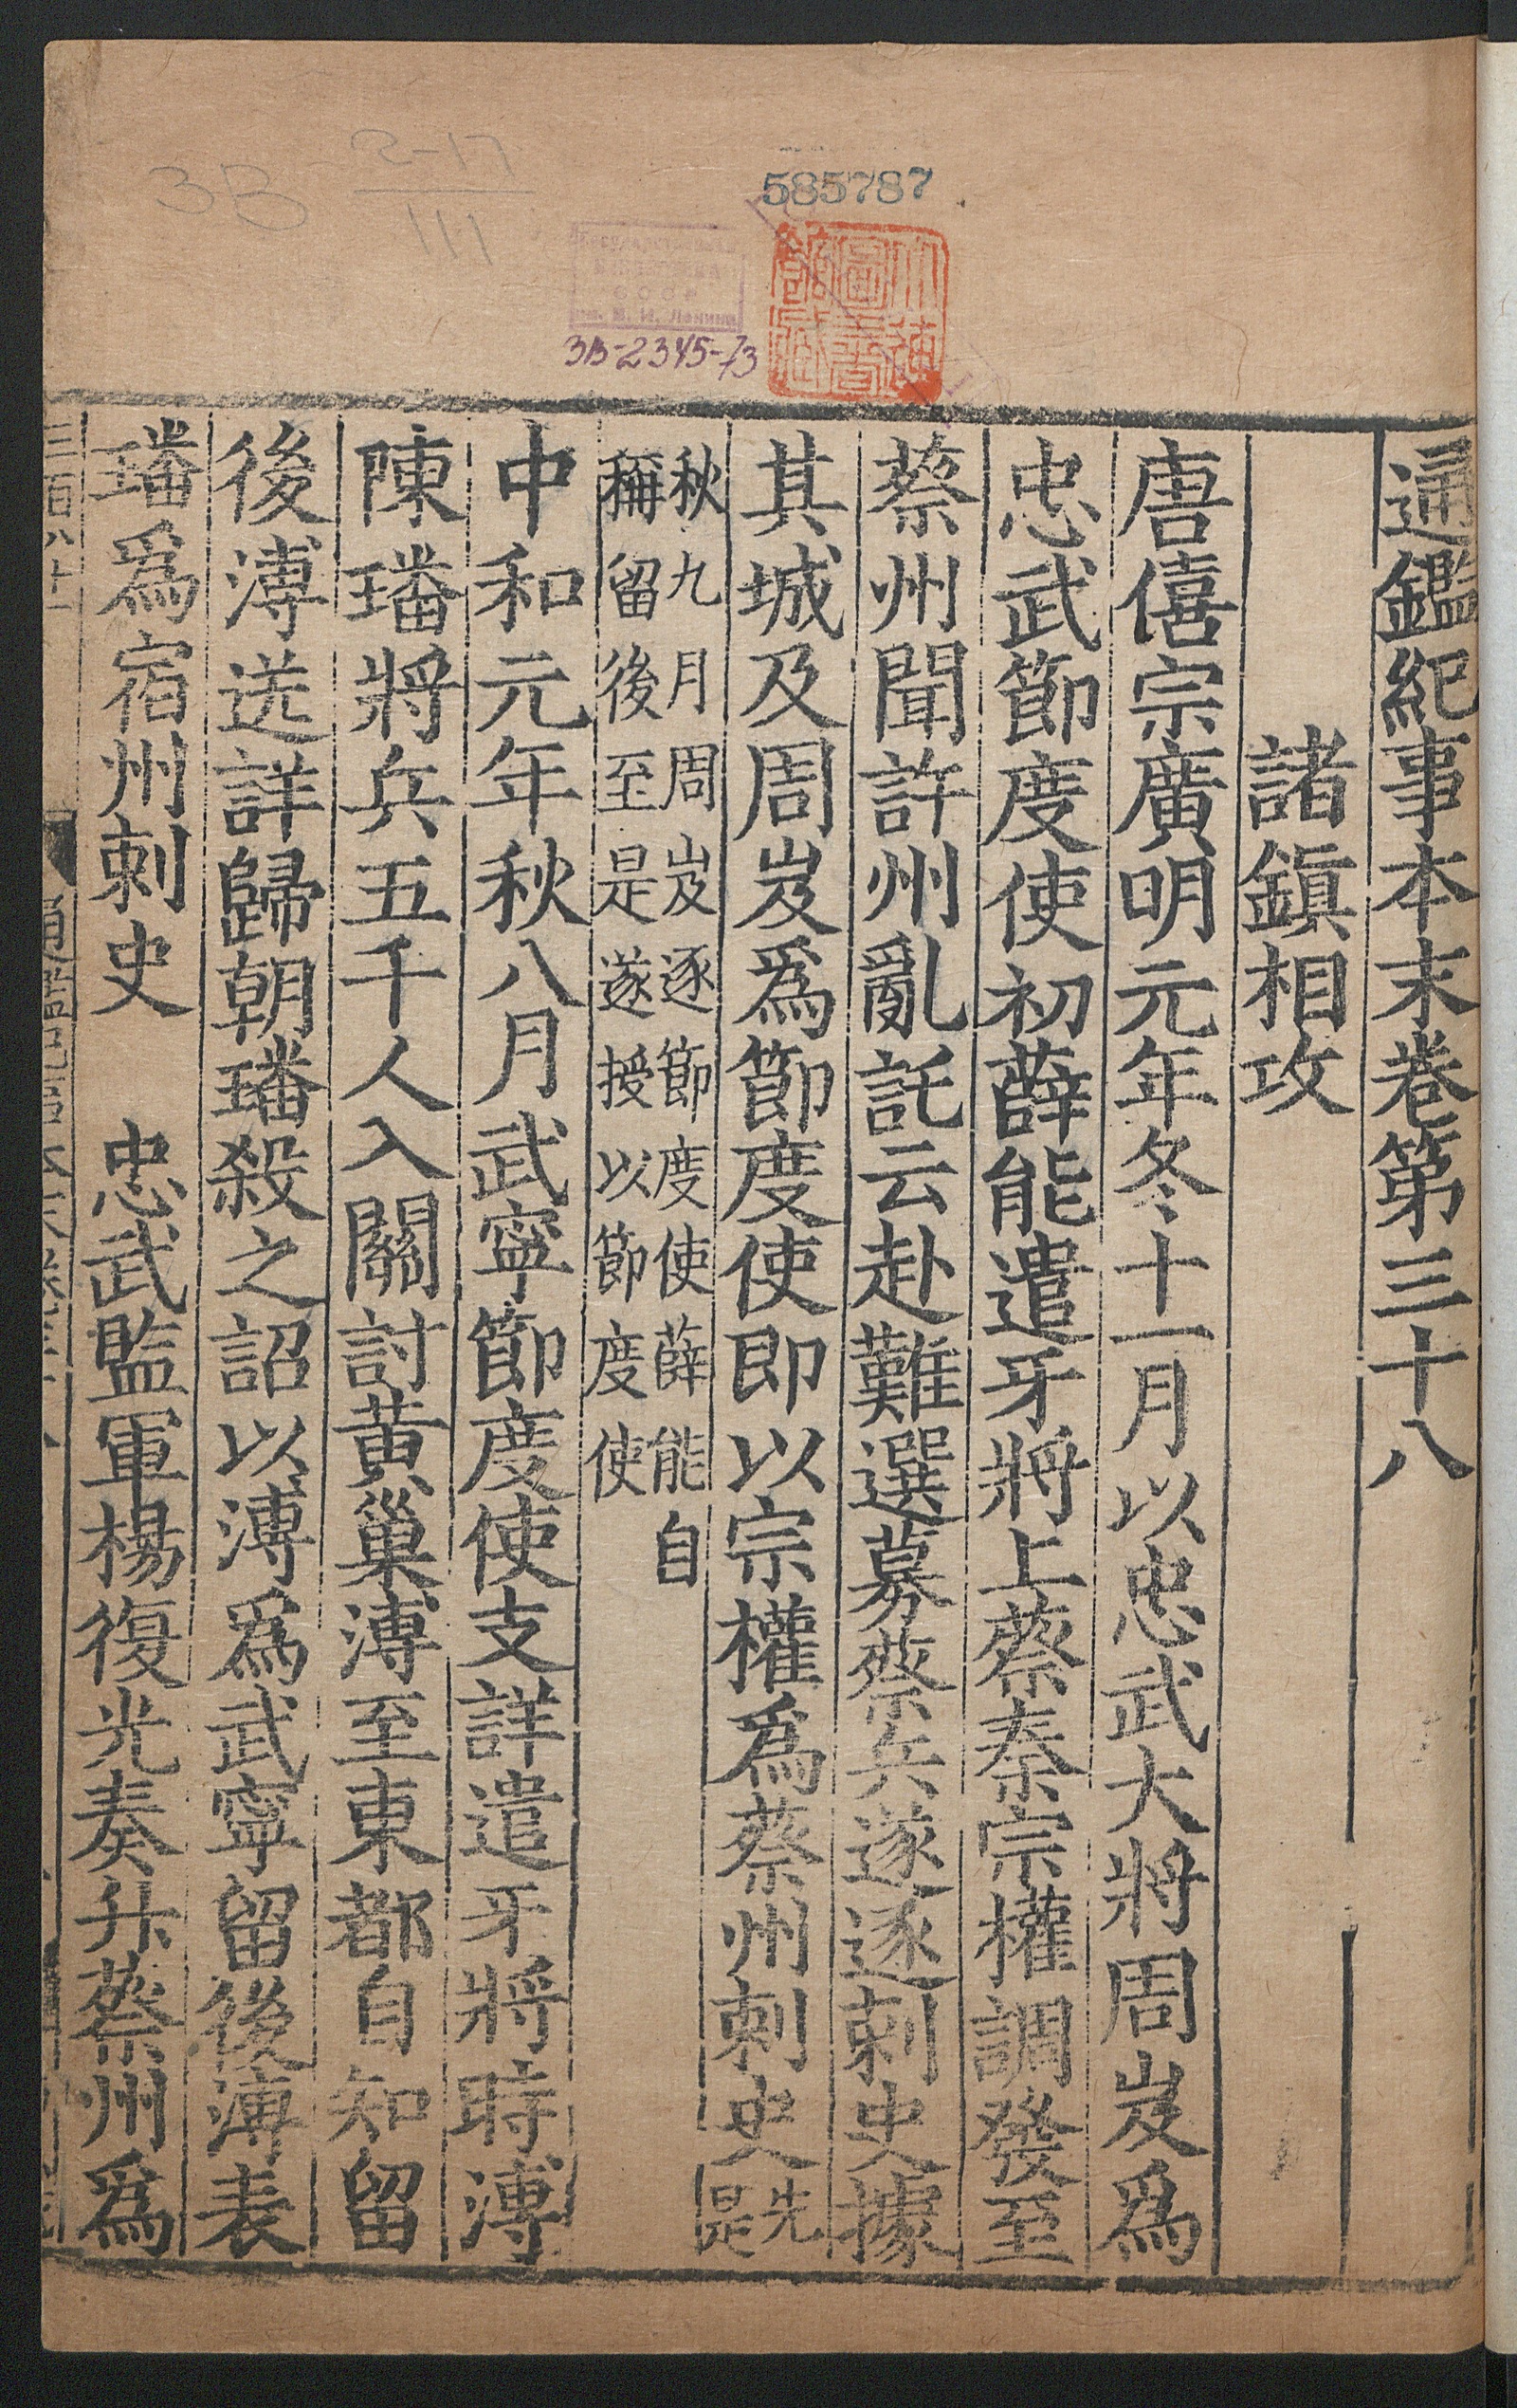 585787
3B 2-17
111
3В-2345-73
通鑑紀事本末卷第三十八
諸鎮相攻
唐僖宗廣明元年冬十一月以忠武大將周岌爲
忠武節度使初薛能遣牙將上蔡秦宗權調發至
蔡州聞許州亂託云赴難選募蔡兵遂逐刺史據
其城及周岌爲節度使即以宗權爲蔡州刺史先是
秋九月周岌逐節度使薛能自
稱留後至是遂授以節度使
中和元年秋八月武寧節度使支詳遣牙將時溥
陳璠將兵五千人入關討黃巢溥至東都自知留
後溥送詳歸朝璠殺之詔以溥爲武寧留後溥表
璠爲宿州刺史 忠武監軍楊復光奏升蔡州爲
三百八十